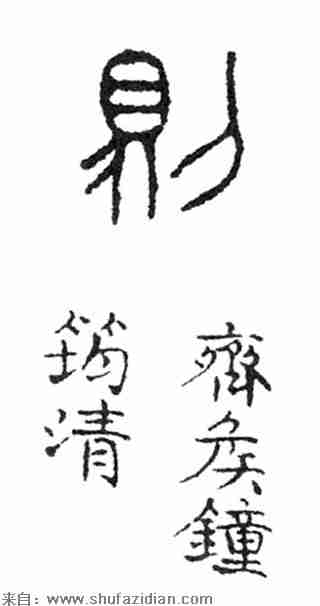 則
齊矦鐘
筠清
来自：www.shufazidian.com